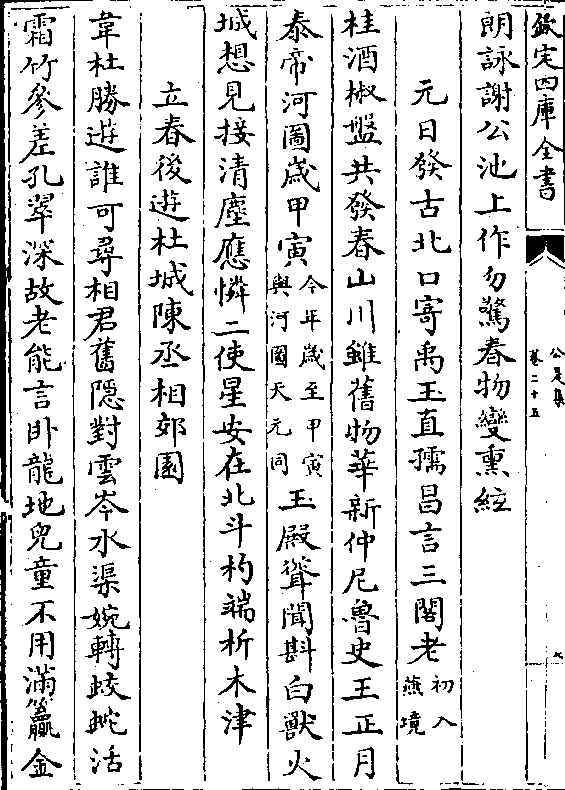 欽定四庫全書
公是集
卷二十五
七
朗詠謝公池上作勿驚春物變熏絃
元日發古北口寄禹玉直孺昌言三閣老初入燕境
桂酒椒盤共發春山川雖舊物華新仲尼魯史王正月
泰帝河圖歲甲寅今年歲至甲寅與河圖天元同玉殿聳聞斟白獸火
城想見接清塵應憐二使星安在北斗杓端析木津
立春後遊杜城陳丞相郊園
韋杜勝遊誰可尋相君舊隱對雲岑水渠婉轉蛟虵活
霜竹參差孔翠深故老能言臥龍地兒童不用滿籯金